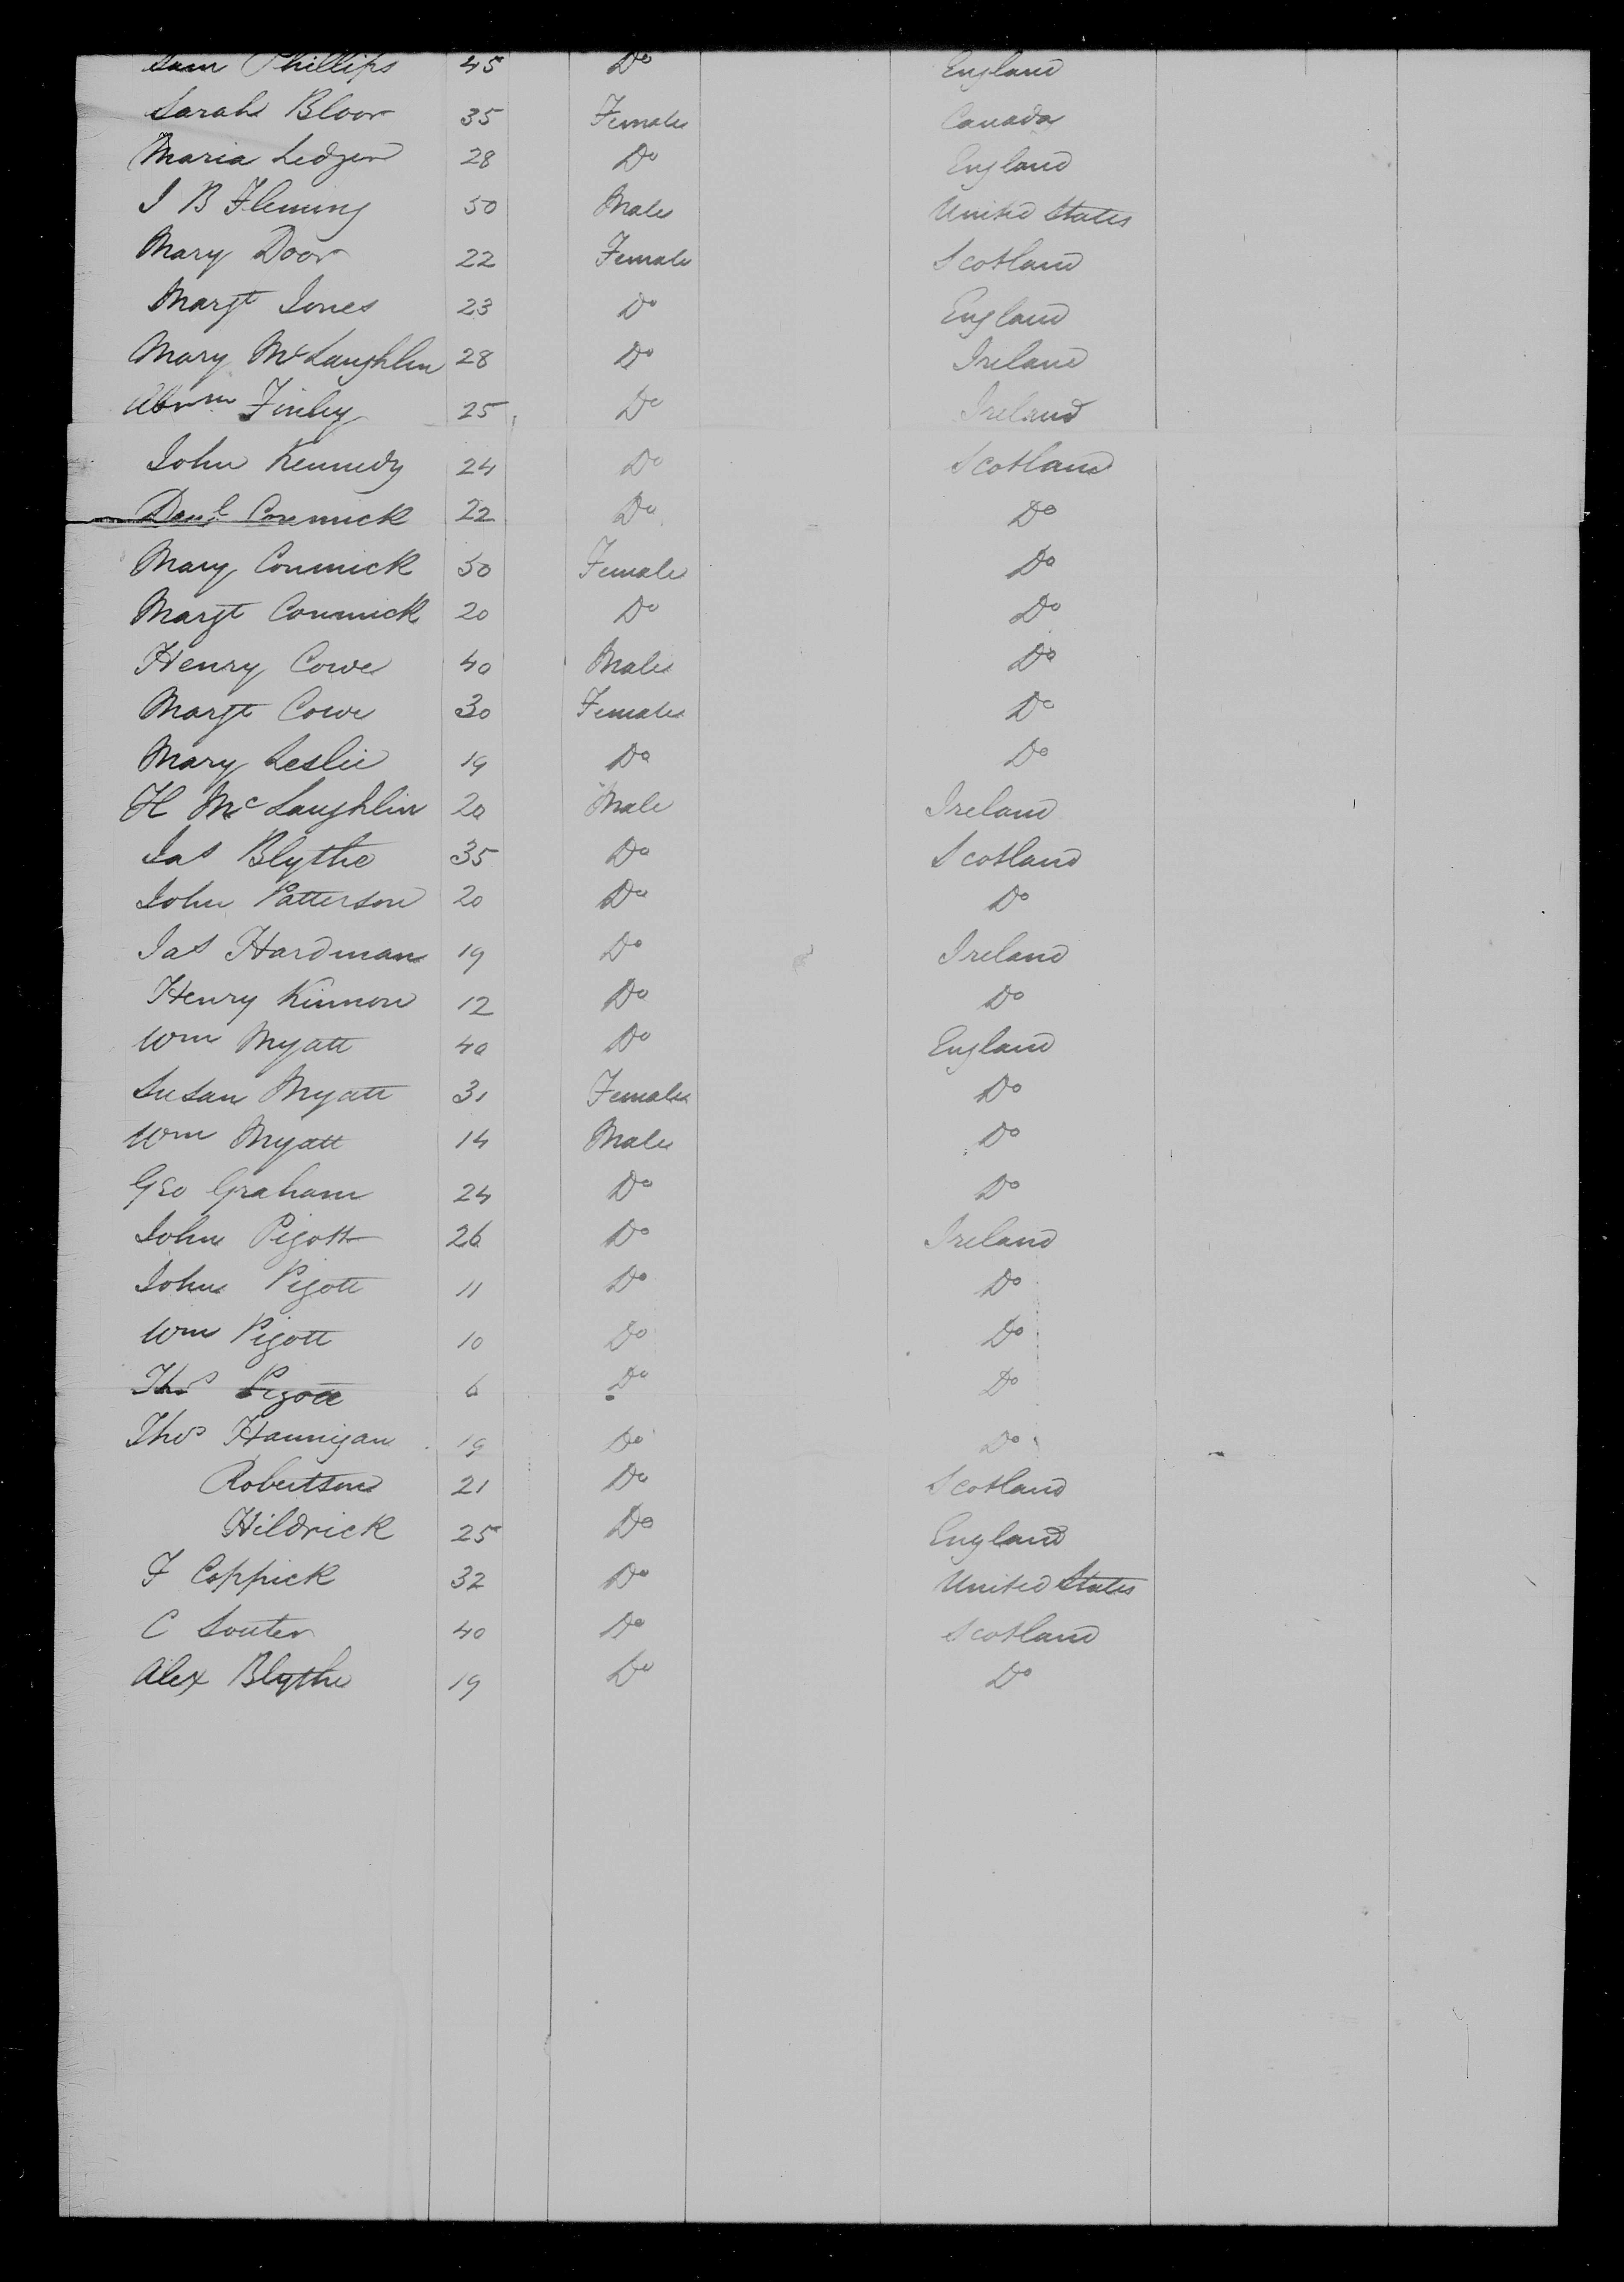 Sam Phillips 45 Do England
Sarah Bloor 35 Female Canada
Maria Ledger 28 Do England
J B Fleming 50 Male United States
Mary Door 22 Female Scotland
Margt Jones 23 Do England
Mary McLaughlin 28 Do Ireland
Abrm Finley 25 Do Ireland
John Kennedy 24 Do Scotland
Danl Conmick 22 Do Do
Mary Conmick 50 Female Do
Margt Conmick 20 Do Do
Henry Cowe 40 Male Do
Margt Cowe 30 Female Do
Mary Leslie 19 Do Do
H McLaughlin 20 Male Ireland
Jas Blythe 35 Do Scotland
John Patterson 20 Do Do
Jas Hardman 19 Do Ireland
Henry Kinnon 12 Do Do
Wm Myatt 40 Do England
Susan Myatt 31 Female Do
Wm Myatt 14 Male Do
Geo Graham 24 Do Do
John Pigott 26 Do Ireland
John Pigott 11 Do Do
Wm Pigott 10 Do Do
Thos Pigott 6 Do Do
Thos Hannigan 19 Do Do
Robertson 21 Do Scotland
Hildrick 25 Do England
F Coppick 32 Do United States
C Souter 40 Do Scotland
Alex Blythe 19 Do Do